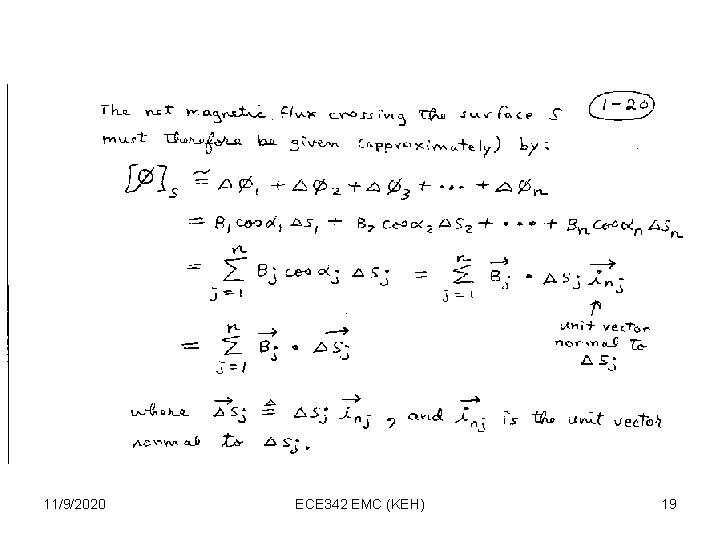 1-20
The net magnetic flux crossing the surface S
must therefore be given (approximately) by:
[Ø]ₛ ≅ ΔØ₁ + ΔØ₂ + ΔØ₃ + ··· + ΔØₙ
= B₁cosα₁ΔS₁ + B₂cosα₂ΔS₂ + ··· + Bₙcosαₙ ΔSₙ
= Σ_{j=1}^{n} Bⱼcosαⱼ ΔSⱼ = Σ_{j=1}^{n} B⃗ⱼ • ΔSⱼ i⃗ₙⱼ
↑
unit vector
normal to
ΔSⱼ
= Σ_{j=1}^{n} B⃗ⱼ • ΔS⃗ⱼ
where ΔS⃗ⱼ ≜ ΔSⱼ i⃗ₙⱼ, and i⃗ₙⱼ is the unit vector
normal to ΔSⱼ.
11/9/2020 ECE 342 EMC (KEH) 19